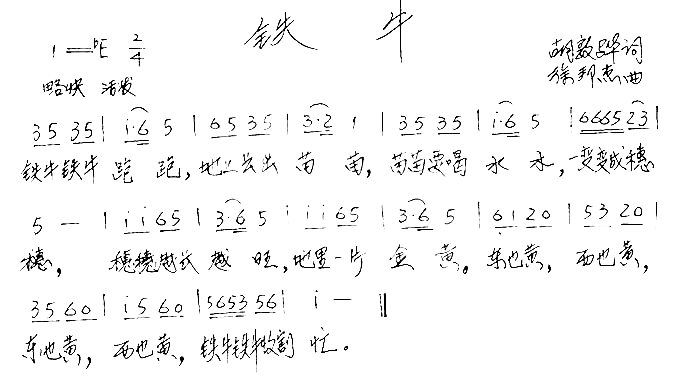 铁 牛
1=♭E 2/4
胡敦骅词
略快 活泼 徐邦杰曲
35 35 | i·6 5 | 65 35 | 3·2 1 | 35 35 | i·6 5 | 6665 23 |
铁牛铁牛 跑 跑,地上长出 苗 苗,苗苗要喝 水 水,一变变成穗
5 — | i i 65 | 3·6 5 i i i 65 | 3·6 5 | 6i 20 | 53 20 |
穗, 穗穗越长 越 旺,地里一片 金 黄。东也黄,西也黄,
35 60 | i5 60 | 5653 56 | i — ‖
东也黄,西也黄,铁牛铁牛收割 忙。